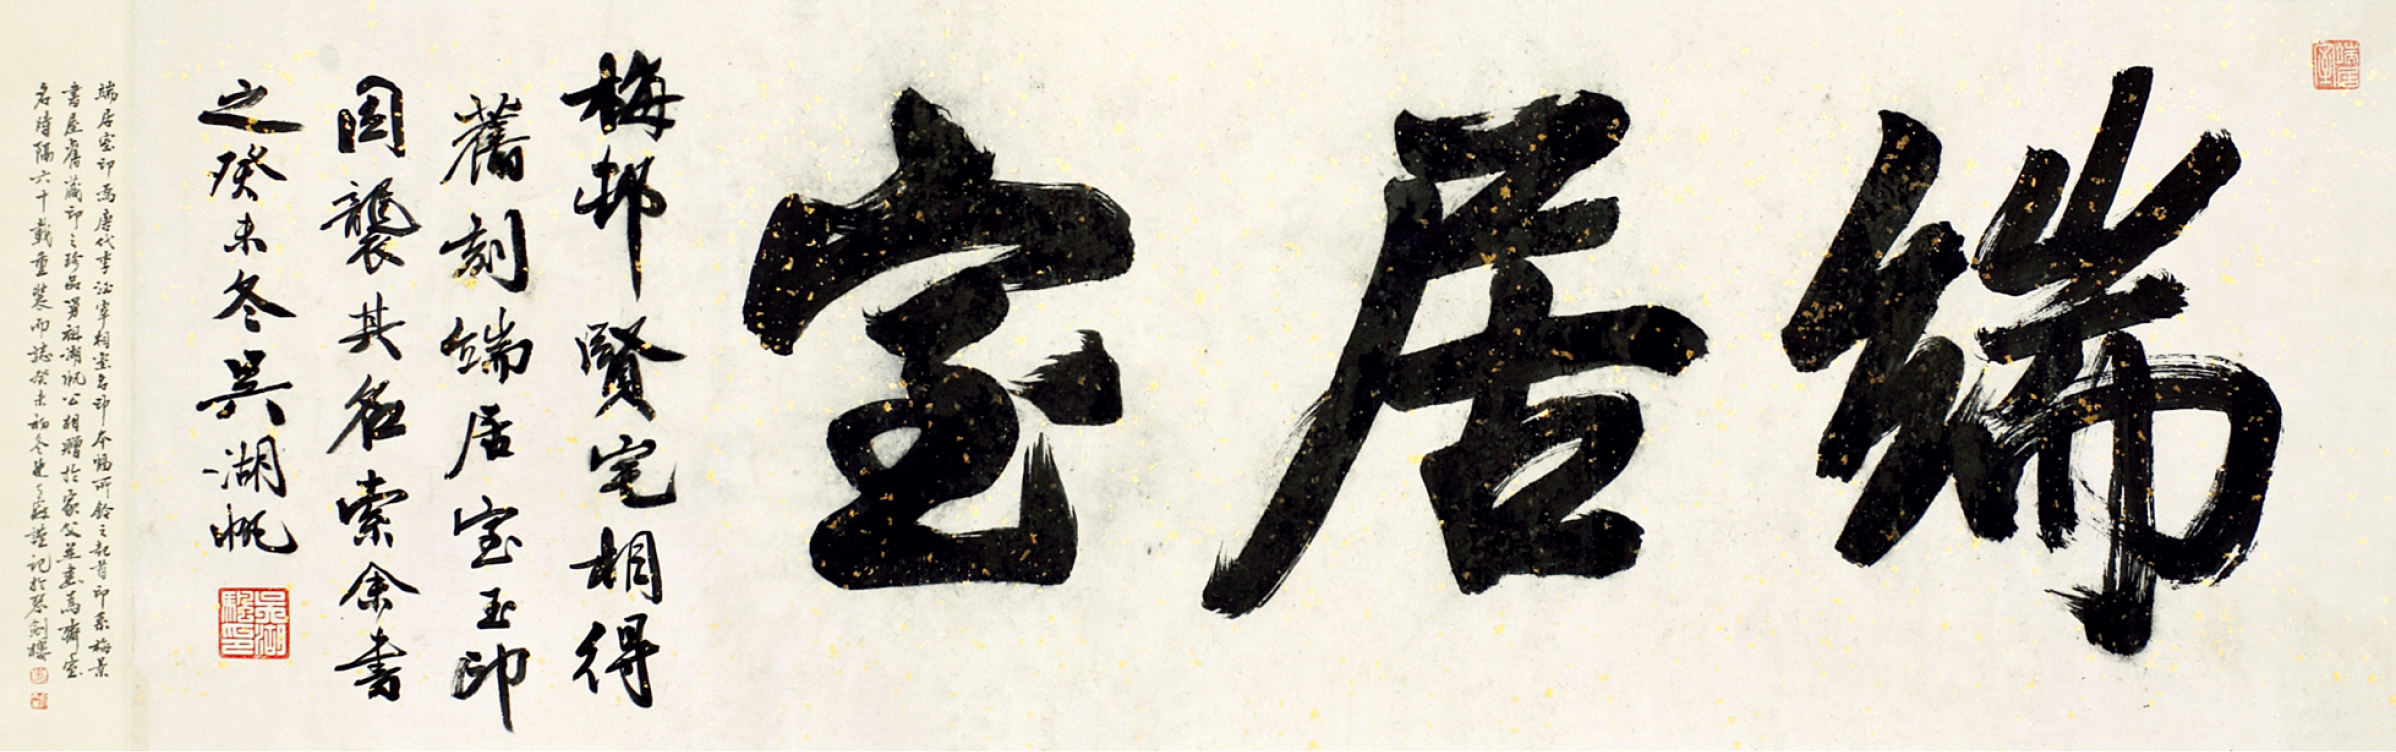 端居室
梅邨賢宅相得
舊刻端居室玉印
因襲其名索余書
之癸未冬吳湖帆
吳湖颿印
端居室
端居室印為唐代李泌宰相室名印本幅所鈐之起首印系梅景
書屋舊藏印之珍品舅祖湖帆公相贈於家父並書為齋室
名時隔六十載重裝而誌癸未初冬謹記於琴劍樓